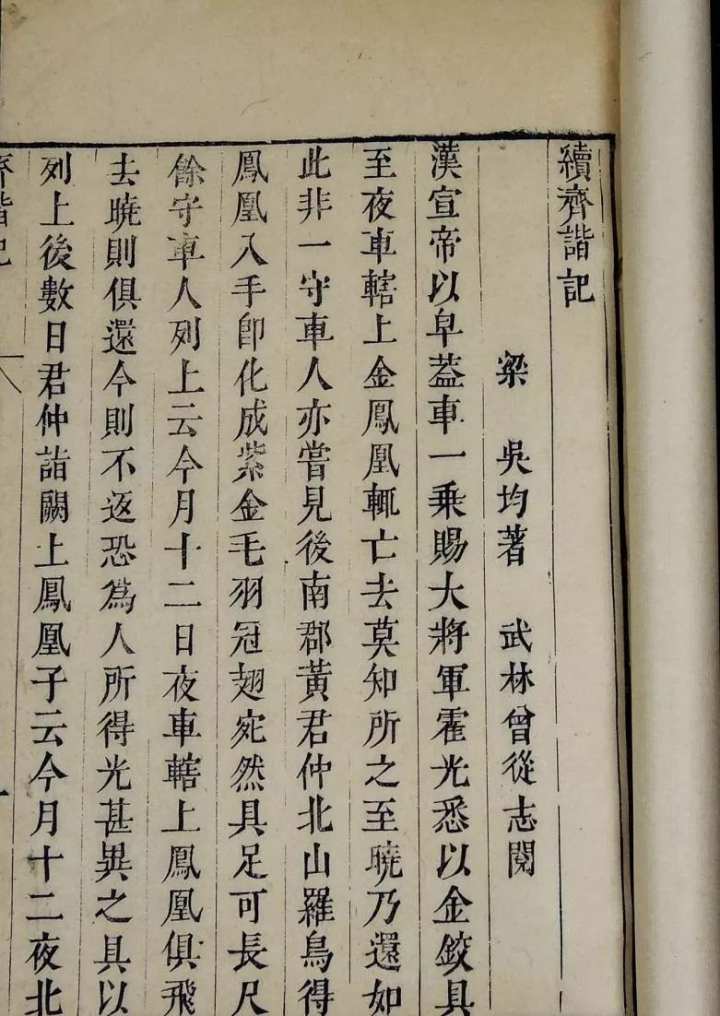 續齊諧記
梁 吳均著 武林曾從志閱
漢宣帝以皁葢車一乗賜大將軍霍光悉以金鉸具
至夜車轄上金鳳凰輒亡去莫知所之至曉乃還如
此非一守車人亦嘗見後南郡黃君仲北山羅鳥得
鳳凰入手卽化成紫金毛羽冠翅宛然具足可長尺
餘守車人列上云今月十二日夜車轄上鳳凰俱飛
去曉則俱還今則不返恐爲人所得光甚異之具以
列上後數日君仲詣闕上鳳凰子云今月十二夜北
齊諧記 一